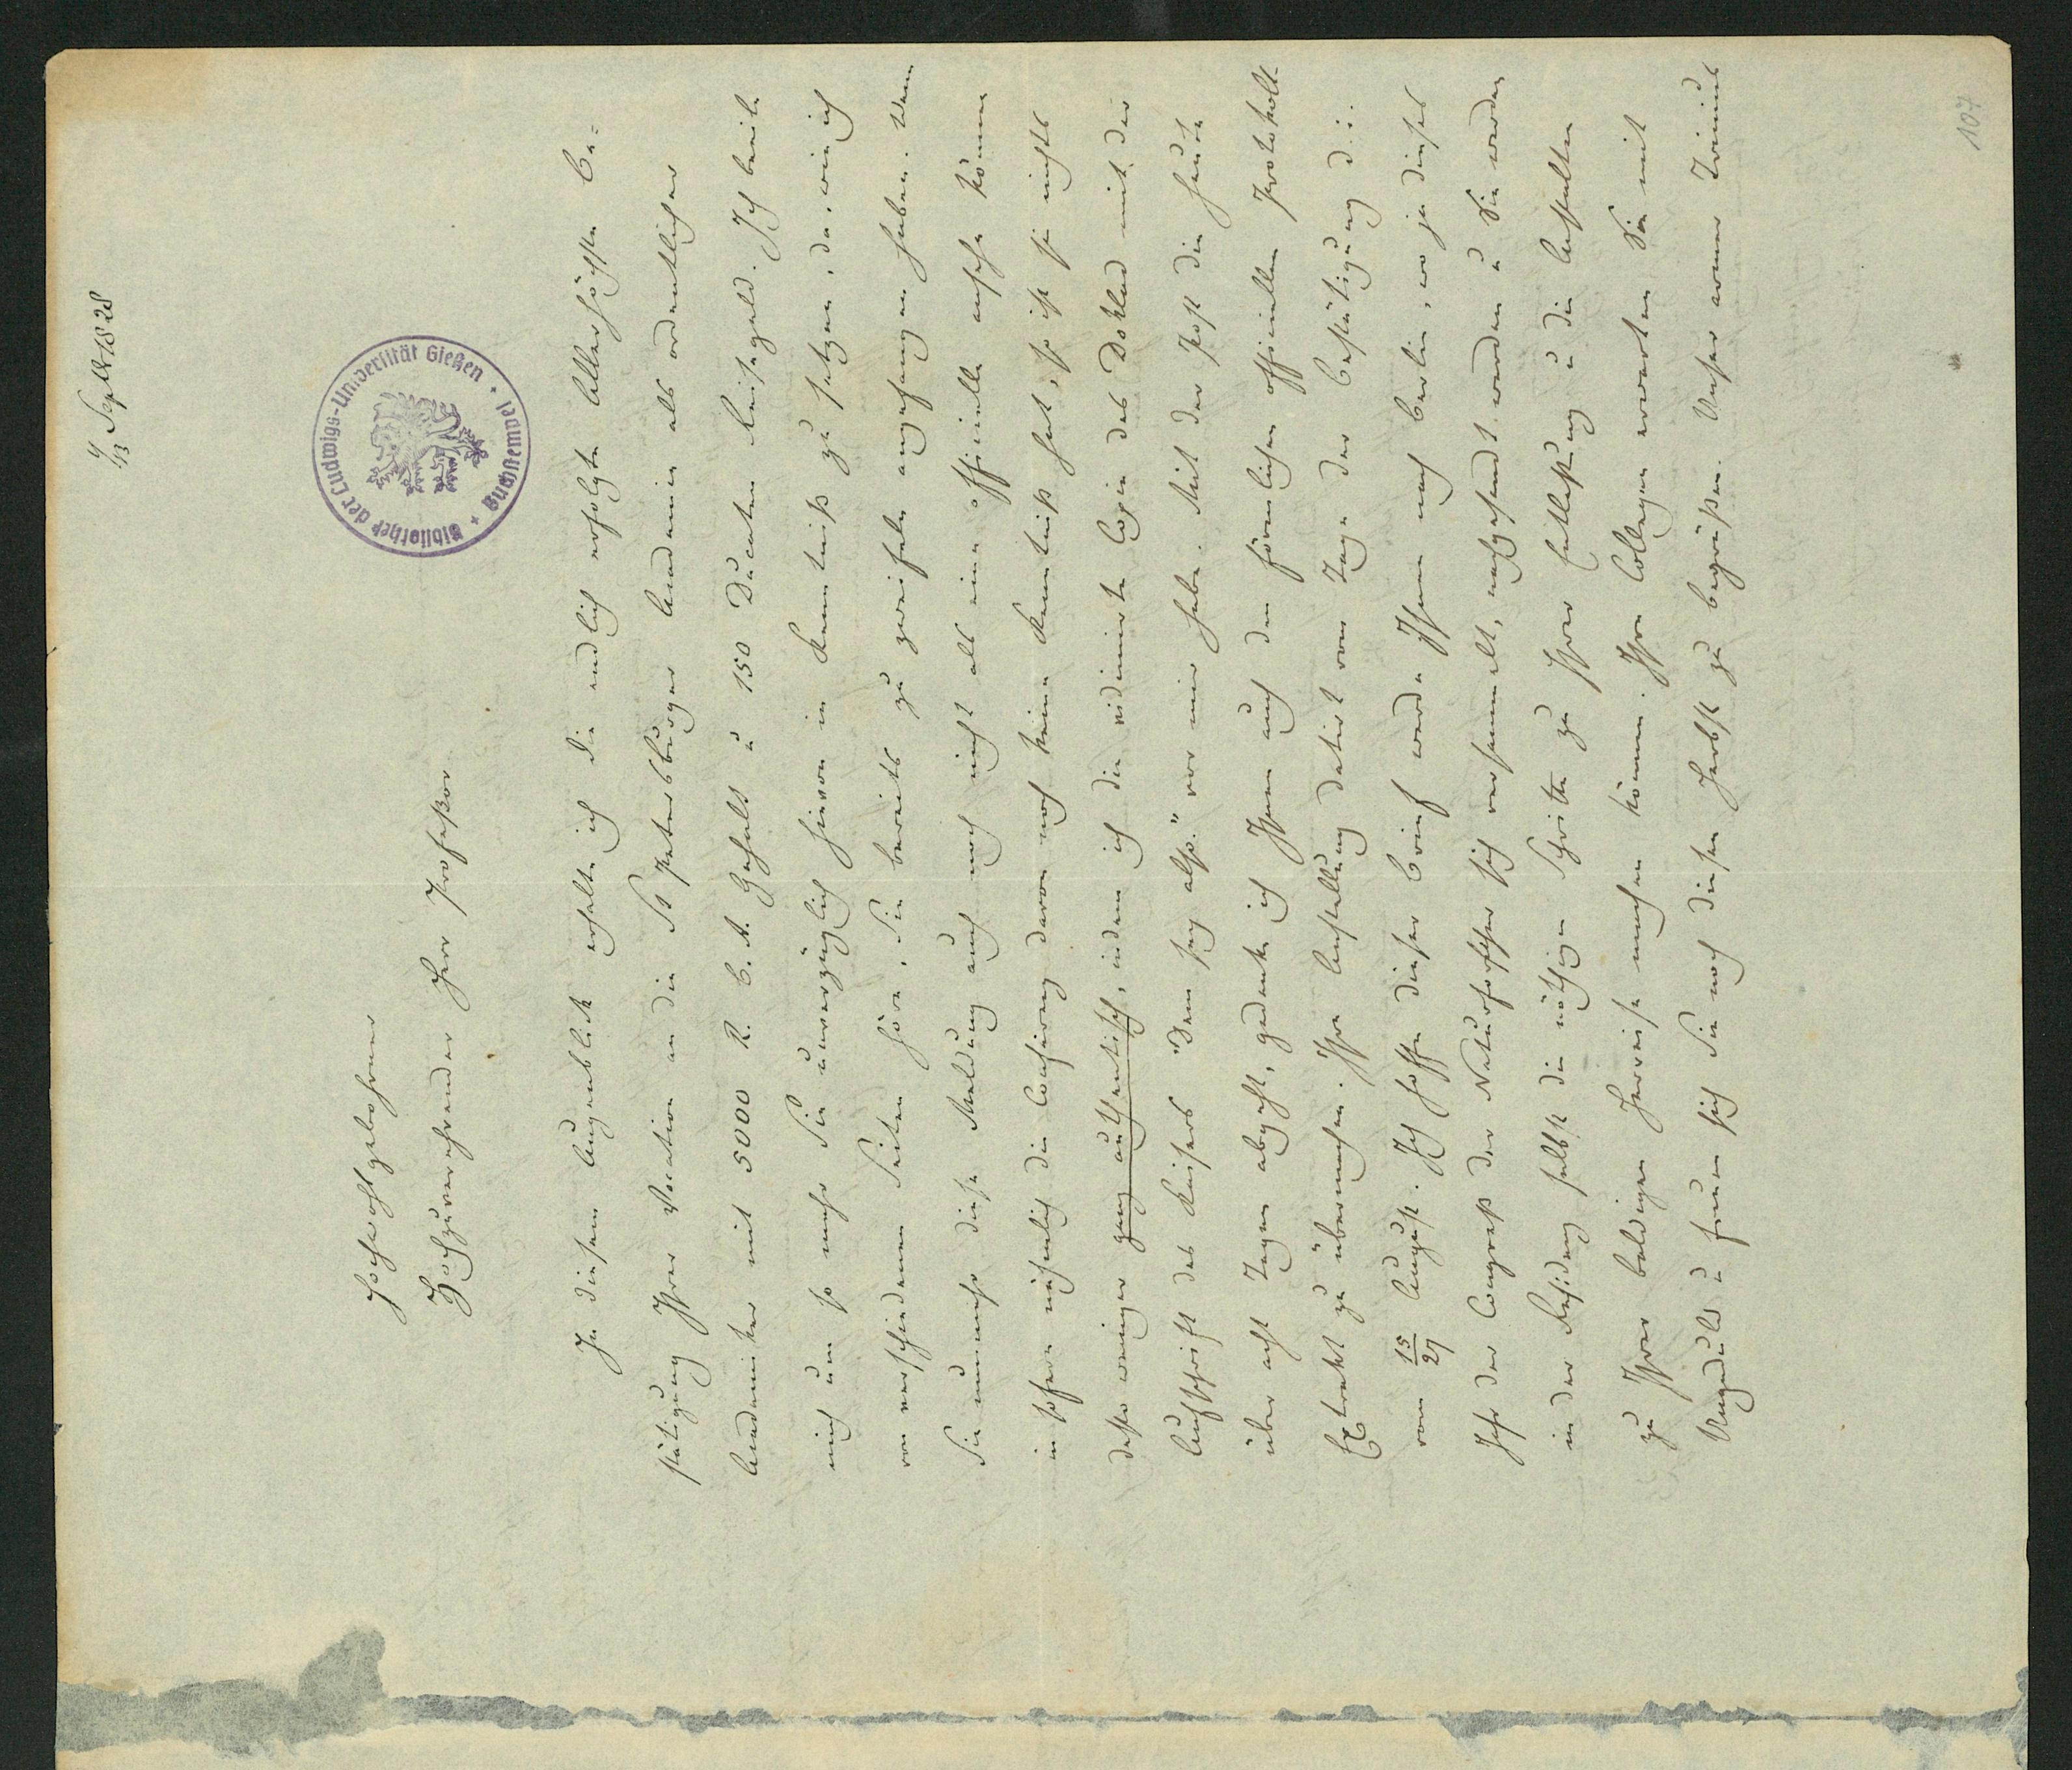 1/13 Septbr 1828
Bibliothek der Ludwigs-Universität Gießen + Buchstempel +
Hochwohlgebohrner
Hochzuverehrender Herr Professor
In diesem Augenblick erhalte ich die endlich erfolgte Allerhöchste Be=
stätigung Ihrer Vocation an die St Petersburger Academie als ordentlicher
Academiker mit 5000 R. B. A. Gehalt u 150 Ducaten Reisegeld. Ich beeile
mich um so mehr Sie unverzüglich hievon in Kenntniß zu setzen, da, wie ich
von verschiedenen Seiten höre, Sie bereits zu zweifeln angefangen haben. Wenn
Sie nunmehr diese Meldung auch noch nicht als eine officielle ansehen können
in sofern nähmlich die Conferenz davon noch keine Kenntniß hat, so ist sie nichts
desto weniger ganz authentisch, indem ich die vidimirte Copie des Doklad mit der
Aufschrift des Kaisers "Dem sey also." vor mir habe. Mit der Post die heute
über acht Tagen abgeht, gedenke ich Ihnen auch den förmlichen officiellen Protokoll-
Extrakt zu übermachen. Ihre Anstellung datirt vom Tage der Bestätigung d. i.
vom 15/27 August. Ich hoffe dieser Brief werde Ihnen nach Berlin, wo ja dieses
Jahr der Congress der Naturforscher sich versammelt, nachgesandt werden u Sie werden
in der Residenz selbst die nöthigen Schritte zu Ihrer Entlassung u die Anstalten
zu Ihrer baldigen Herreise machen können. Ihre Collegen erwarten Sie mit
Ungeduld u freuen sich Sie noch diesen Herbst zu begrüßen. Unser armer Trinius
107